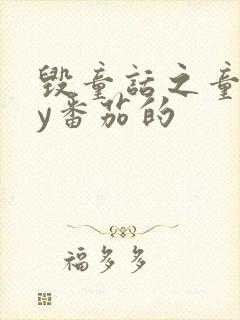 毁童话之童
y番茄的
福多多